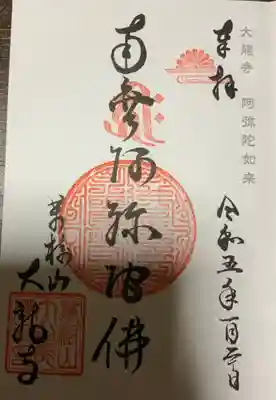 大龍寺 阿弥陀如来
奉拝
令和五年一月
南無阿弥陀佛
山
大龍寺